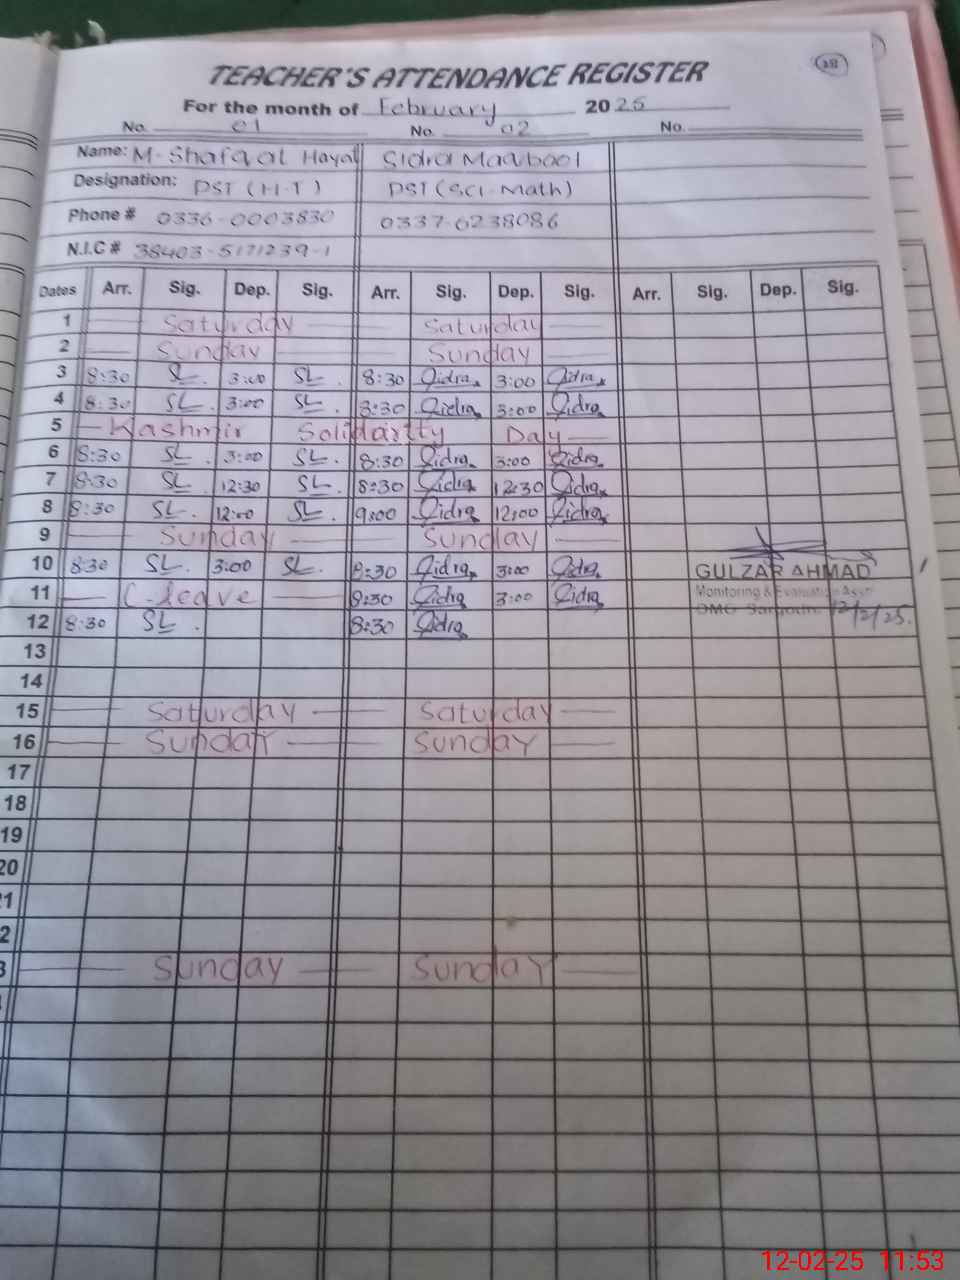 28
TEACHER'S ATTENDANCE REGISTER
For the month of February 2025
No. 01 No. 02 No.
Name: M. Shafqat Hayat Sidra Maqbool
Designation: PST (H-T) PST (Sci-Math)
Phone # 0336-0003830 0337-6238086
N.I.C # 38403-5171239-1
Dates Arr. Sig. Dep. Sig. Arr. Sig. Dep. Sig. Arr. Sig. Dep. Sig.
1 Saturday Saturday
2 Sunday Sunday
3 8:30 SL 3:00 SL 8:30 Sidra 3:00 Sidra
4 8:30 SL 3:00 SL 8:30 Sidra 3:00 Sidra
5 Kashmir Solidarity Day
6 8:30 SL 3:00 SL 8:30 Sidra 3:00 Sidra
7 8:30 SL 12:30 SL 8:30 Sidra 12:30 Sidra
8 8:30 SL 12:00 SL 9:00 Sidra 12:00 Sidra
9 Sunday Sunday
10 8:30 SL 3:00 SL 8:30 Sidra 3:00 Sidra GULZAR AHMAD
11 C-leave 8:30 Sidra 3:00 Sidra Monitoring & Evaluation Asstt
12 8:30 SL 8:30 Sidra DMO Sargodha 12/2/25.
13
14
15 Saturday Saturday
16 Sunday Sunday
17
18
19
20
1
2
3 Sunday Sunday
12-02-25 11:53